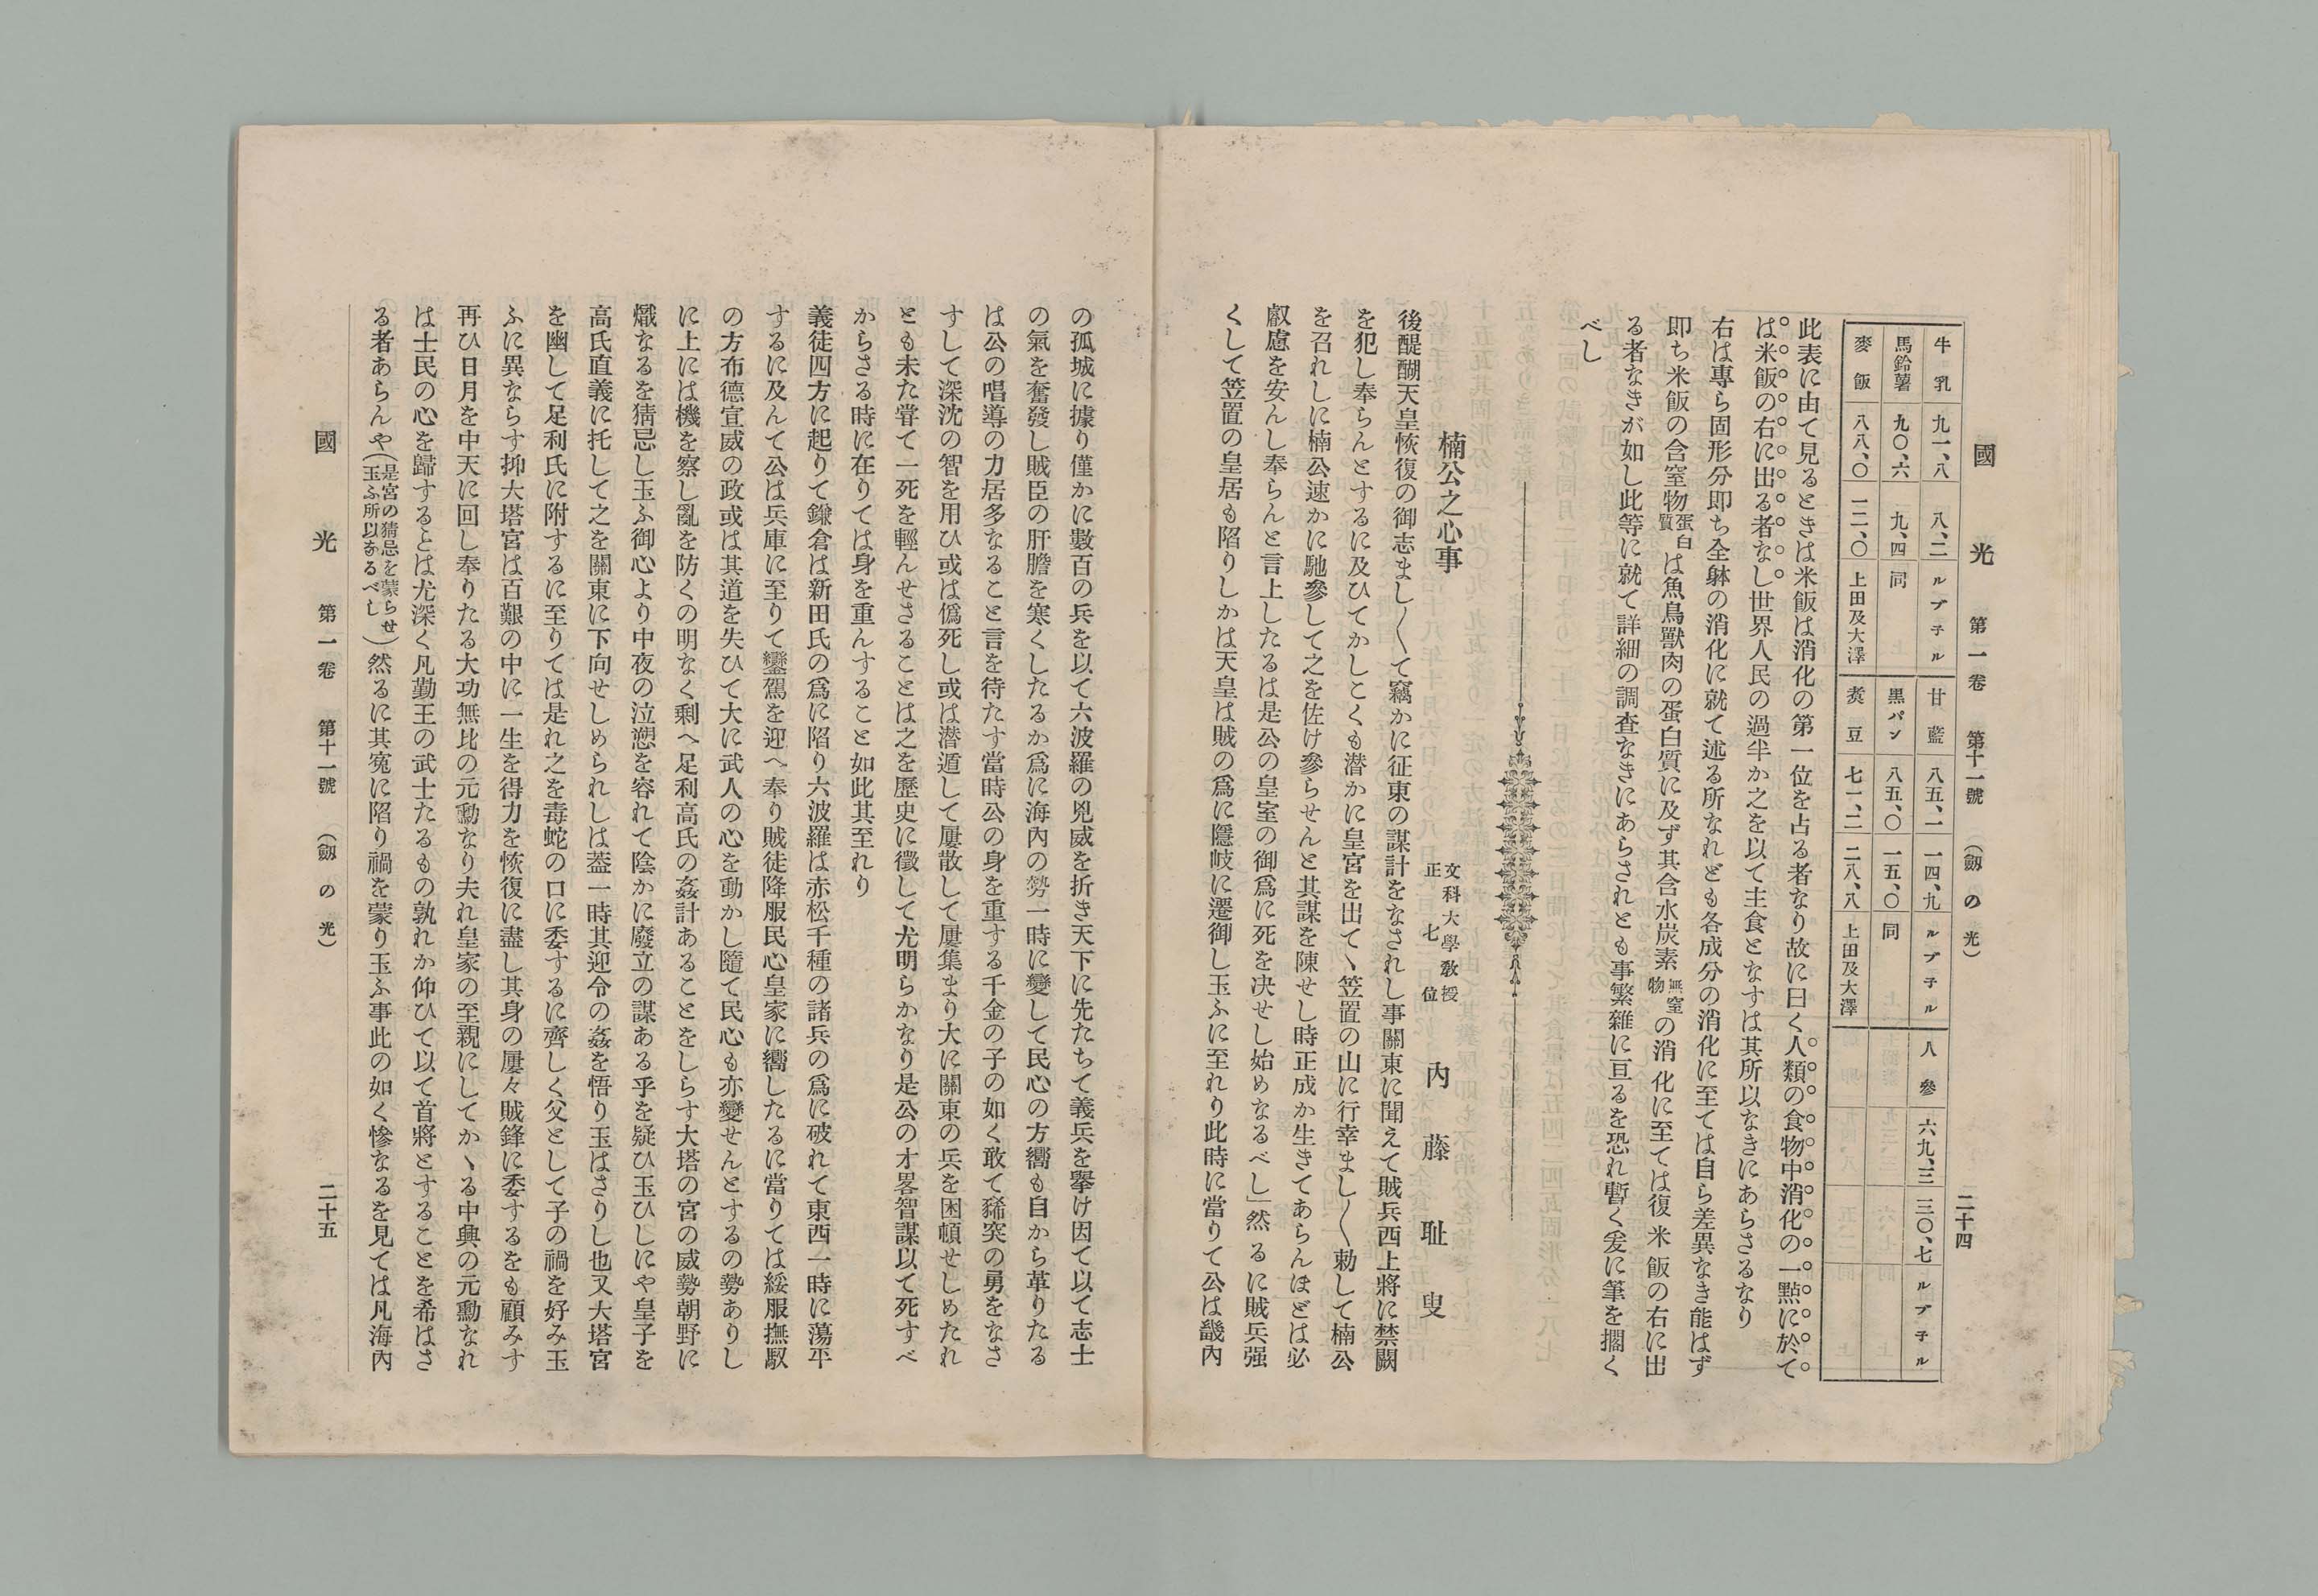 國光 第一卷 第十一號 (劔の光) 二十四
牛乳 九一、八 八、二 ルブ子ル 甘藍 八五、一 一四、九 ルブ子ル 人參 六九、三 三〇、七 ルブ子ル
馬鈴薯 九〇、六 九、四 同 黑パン 八五、〇 一五、〇 同
麥飯 八八、〇 一二、〇 上田及大澤 煑豆 七一、二 二八、八 上田及大澤
此表に由て見るときは米飯は消化の第一位を占る者なり故に曰く人類の食物中消化の一點に於て
は米飯の右に出る者なし世界人民の過半か之を以て主食となすは其所以なきにあらさるなり
右は專ら固形分即ち全躰の消化に就て述る所なれども各成分の消化に至ては自ら差異なき能はず
即ち米飯の含窒物蛋白質は魚鳥獸肉の蛋白質に及ず其含水炭素無窒物の消化に至ては復米飯の右に出
る者なきが如し此等に就て詳細の調査なきにあらされとも事繁雜に亘るを恐れ暫く爰に筆を擱く
べし
楠公之心事
文科大學敎授
正七位
內藤耻叟
後醍醐天皇恢復の御志まし〱て竊かに征東の謀計をなされし事關東に聞えて賊兵西上將に禁闕
を犯し奉らんとするに及ひてかしこくも潜かに皇宮を出てヽ笠置の山に行幸まし〱勅して楠公
を召れしに楠公速かに馳參して之を佐け參らせんと其謀を陳せし時正成か生きてあらんほどは必
叡慮を安んし奉らんと言上したるは是公の皇室の御爲に死を决せし始めなるべし」然るに賊兵强
くして笠置の皇居も陷りしかは天皇は賊の爲に隱岐に遷御し玉ふに至れり此時に當りて公は畿內
の孤城に據り僅かに數百の兵を以て六波羅の兇威を折き天下に先たちて義兵を擧け因て以て志士
の氣を奮發し賊臣の肝膽を寒くしたるか爲に海內の勢一時に變して民心の方嚮も自から革りたる
は公の唱導の力居多なること言を待たす當時公の身を重する千金の子の如く敢て豨突の勇をなさ
すして深沈の智を用ひ或は僞死し或は潜遁して屢散して屢集まり大に關東の兵を困頓せしめたれ
とも未た甞て一死を輕んせさることは之を歷史に徵して尤明らかなり是公の才畧智謀以て死すべ
からさる時に在りては身を重んすること如此其至れり
義徒四方に起りて鎌倉は新田氏の爲に陷り六波羅は赤松千種の諸兵の爲に破れて東西一時に蕩平
するに及んて公は兵庫に至りて鑾駕を迎へ奉り賊徒降服民心皇家に嚮したるに當りては綏服撫馭
の方布德宣威の政或は其道を失ひて大に武人の心を動かし隨て民心も亦變せんとするの勢ありし
に上には機を察し亂を防くの明なく剩へ足利高氏の姦計あることをしらす大塔の宮の威勢朝野に
熾なるを猜忌し玉ふ御心より中夜の泣愬を容れて陰かに廢立の謀ある乎を疑ひ玉ひしにや皇子を
高氏直義に托して之を關東に下向せしめられしは葢一時其迎合の姦を悟り玉はさりし也又大塔宮
を幽して足利氏に附するに至りては是れ之を毒蛇の口に委するに齊しく父として子の禍を好み玉
ふに異ならす抑大塔宮は百艱の中に一生を得力を恢復に盡し其身の屢々賊鋒に委するをも顧みす
再ひ日月を中天に回し奉りたる大功無比の元勳なり夫れ皇家の至親にしてかヽる中興の元勳なれ
は士民の心を歸するとは尤深く凡勤王の武士たるもの孰れか仰ひて以て首將とすることを希はさ
る者あらんや(是宮の猜忌を蒙らせ玉ふ所以なるべし)然るに其寃に陷り禍を蒙り玉ふ事此の如く慘なるを見ては凡海內
國光 第一卷 第十一號 (劔の光) 二十五